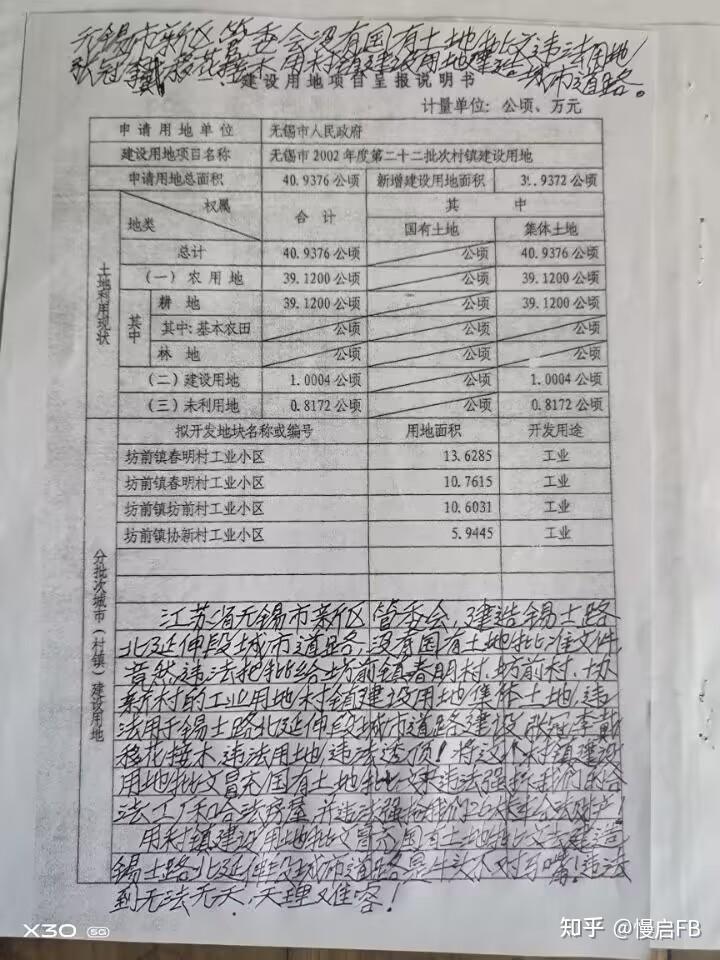 无锡市新区管委会没有国有土地批文违法用地
张冠李戴移花接木用村镇建设用地建造城市道路。
建设用地项目呈报说明书
计量单位：公顷、万元
申请用地单位 无锡市人民政府
建设用地项目名称 无锡市2002年度第二十二批次村镇建设用地
申请用地总面积 40.9376公顷 新增建设用地面积 3 .9372公顷
土地利用现状 权属 地类 合计 其中
国有土地 集体土地
总计 40.9376公顷 公顷 40.9376公顷
（一）农用地 39.1200公顷 公顷 39.1200公顷
其中 耕地 39.1200公顷 公顷 39.1200公顷
其中：基本农田 公顷 公顷 公顷
林地 公顷 公顷 公顷
（二）建设用地 1.0004公顷 公顷 1.0004公顷
（三）未利用地 0.8172公顷 公顷 0.8172公顷
分批次城市（村镇）建设用地 拟开发地块名称或编号 用地面积 开发用途
坊前镇春明村工业小区 13.6285 工业
坊前镇春明村工业小区 10.7615 工业
坊前镇坊前村工业小区 10.6031 工业
坊前镇协新村工业小区 5.9445 工业
江苏省无锡市新区管委会，建造锡士路
北延伸段城市道路，没有国有土地批准文件，
竟然违法把批给坊前镇春明村、坊前村、协
新村的工业用地村镇建设用地集体土地，违
法用于锡士路北延伸段城市道路建设，张冠李戴
移花接木，违法用地，违法透顶！将这个村镇建设
用地批文冒充国有土地批文来违法强拆我们的合
法工厂和合法房屋，并违法强抢我们26大车合法财产！
用村镇建设用地批文冒充国有土地批文去建造
锡士路北延伸段城市道路是牛头不对马嘴！违法
到无法无天，天理难容！
X30 5G
知乎 @慢启FB